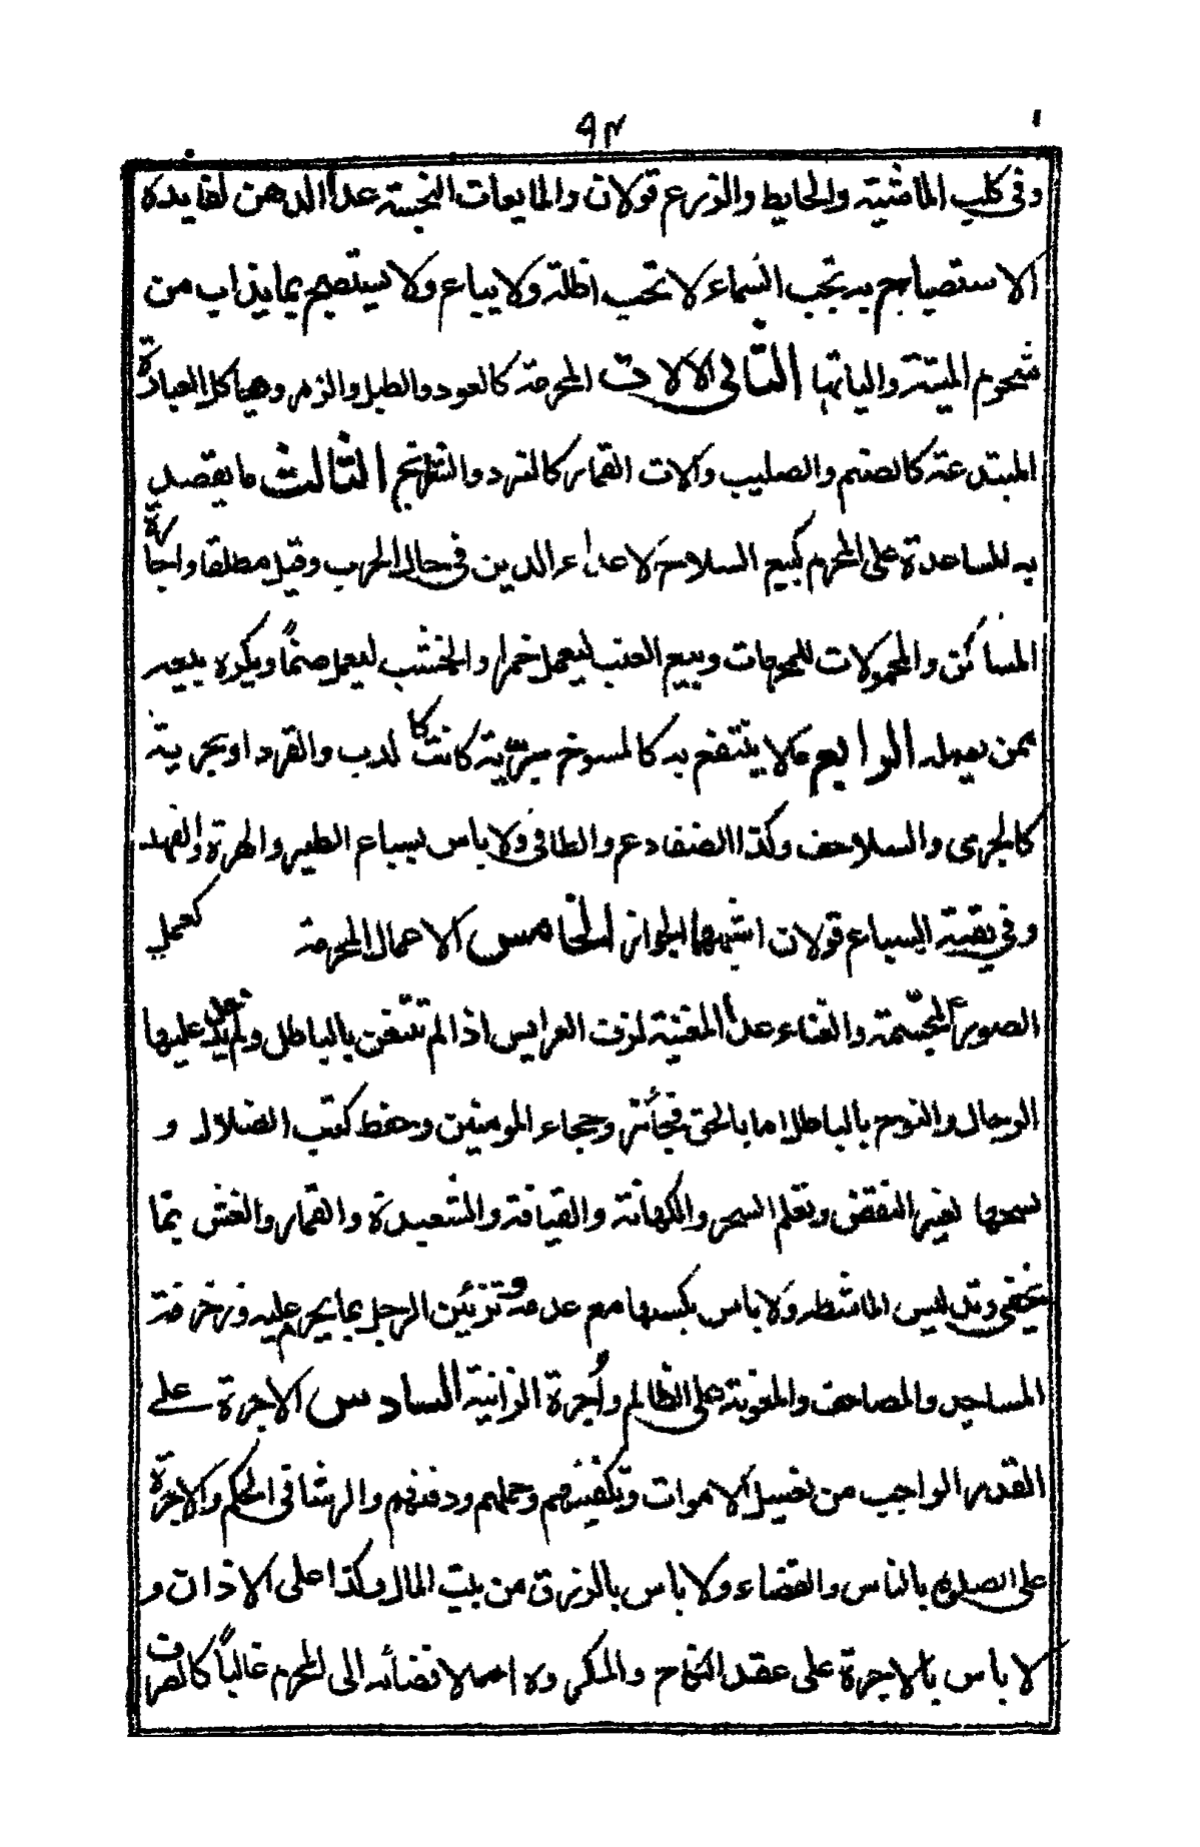 ٩٣
وفى كلب الماشية والحايط والزرع قولان والمايعات النجسة عدا الدهن لفايدة
الاستصباح به تحت السماء لا تحت اظلة ولا يباع ولا يستصبح بما يذاب من
شحوم الميتة والياتها الثانى الالات المحرمة كالعود والطبل والزمر وهياكل العبادة
المبتدعة كالصنم والصليب وآلات القمار كالنرد والشطرنج الثالث ما يقصد
به المساعدة على المحرم كبيع السلاح لاعداء الدين فى حال الحرب وقيل مطلقا واجارة
المساكن والحمولات للمحرمات وبيع العنب ليعمل خمرا والخشب ليعمل صنمًا ويكره بيعه
ممن يعمله الرابع ما لا ينتفع به كالمسوخ برّية كانت كالدب والقرد او بحرية
كالجرى والسلاحف وكذا الضفادع والطافى ولا باس بسباع الطير والهرة والفهد
وفى بقية السباع قولان اشبههما الجواز الخامس الاعمال المحرمة كعمل
الصور المجسّمة والغناء عدا المغنية لزف العرايس اذا لم تتغن بالباطل ولم يدخل عليها
الرجال والنوح بالباطل اما بالحق فجائز وهجاء المومنين وحفظ كتب الضلال و
نسخها لغير النقض وتعلم السحر والكهانة والقيافة والشعبدة والقمار والغش بما
يخفى وتدليس الماشطة ولا باس بكسبها مع عدمه وتزئين الرجل بما يحرم عليه وزخرفة
المساجد والمصاحف والمعونة على الظالم وأجرة الزانية السادس الاجرة على
القدر الواجب من تغسيل الاموات وتكفينهم وحملهم ودفنهم والرشا فى الحكم والاجرة
على الصلوة بالناس والقضاء ولا باس بالرزق من بيت المال وكذا على الاذان و
لا باس بالاجرة على عقد النكاح والمكروه اما لافضائه الى المحرم غالبًا كالصرف